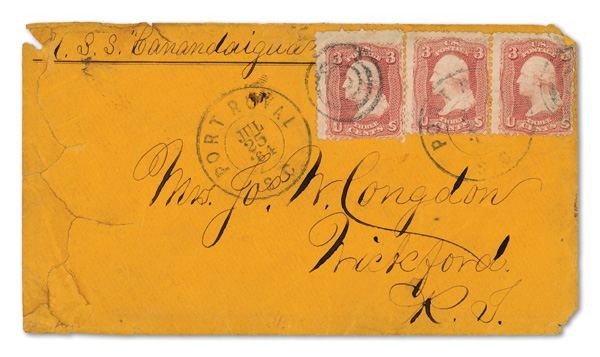 U. S. S. "Canandaigua"
3 U.S. POSTAGE 3
U THREE CENTS S
3 U.S. POSTAGE 3
U THREE CENTS S
3 U.S. POSTAGE 3
U THREE CENTS S
PORT ROYAL S.C.
JUL
25
'64
Mrs. Jo. W. Congdon
Wickford.
R. I.